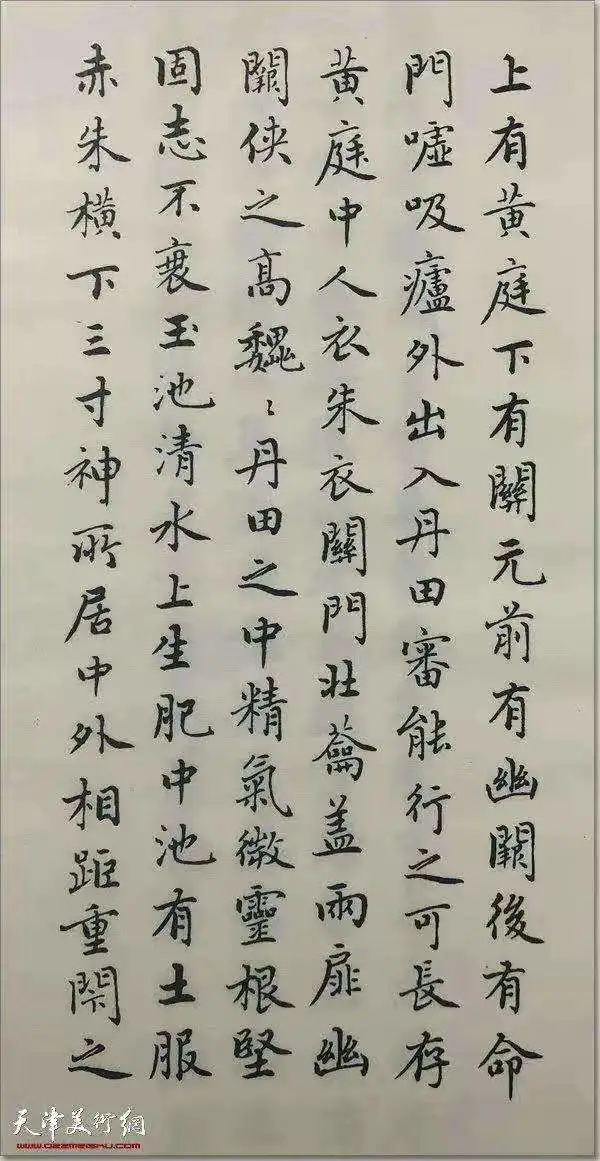 上有黄庭下有關元前有幽闕後有命
門噓吸廬外出入丹田審能行之可長存
黄庭中人衣朱衣關門壯蘥盖兩扉幽
闕俠之高巍〻丹田之中精氣微靈根堅
固志不衰玉池清水上生肥中池有土服
赤朱横下三寸神所居中外相距重閇之
天津美術網